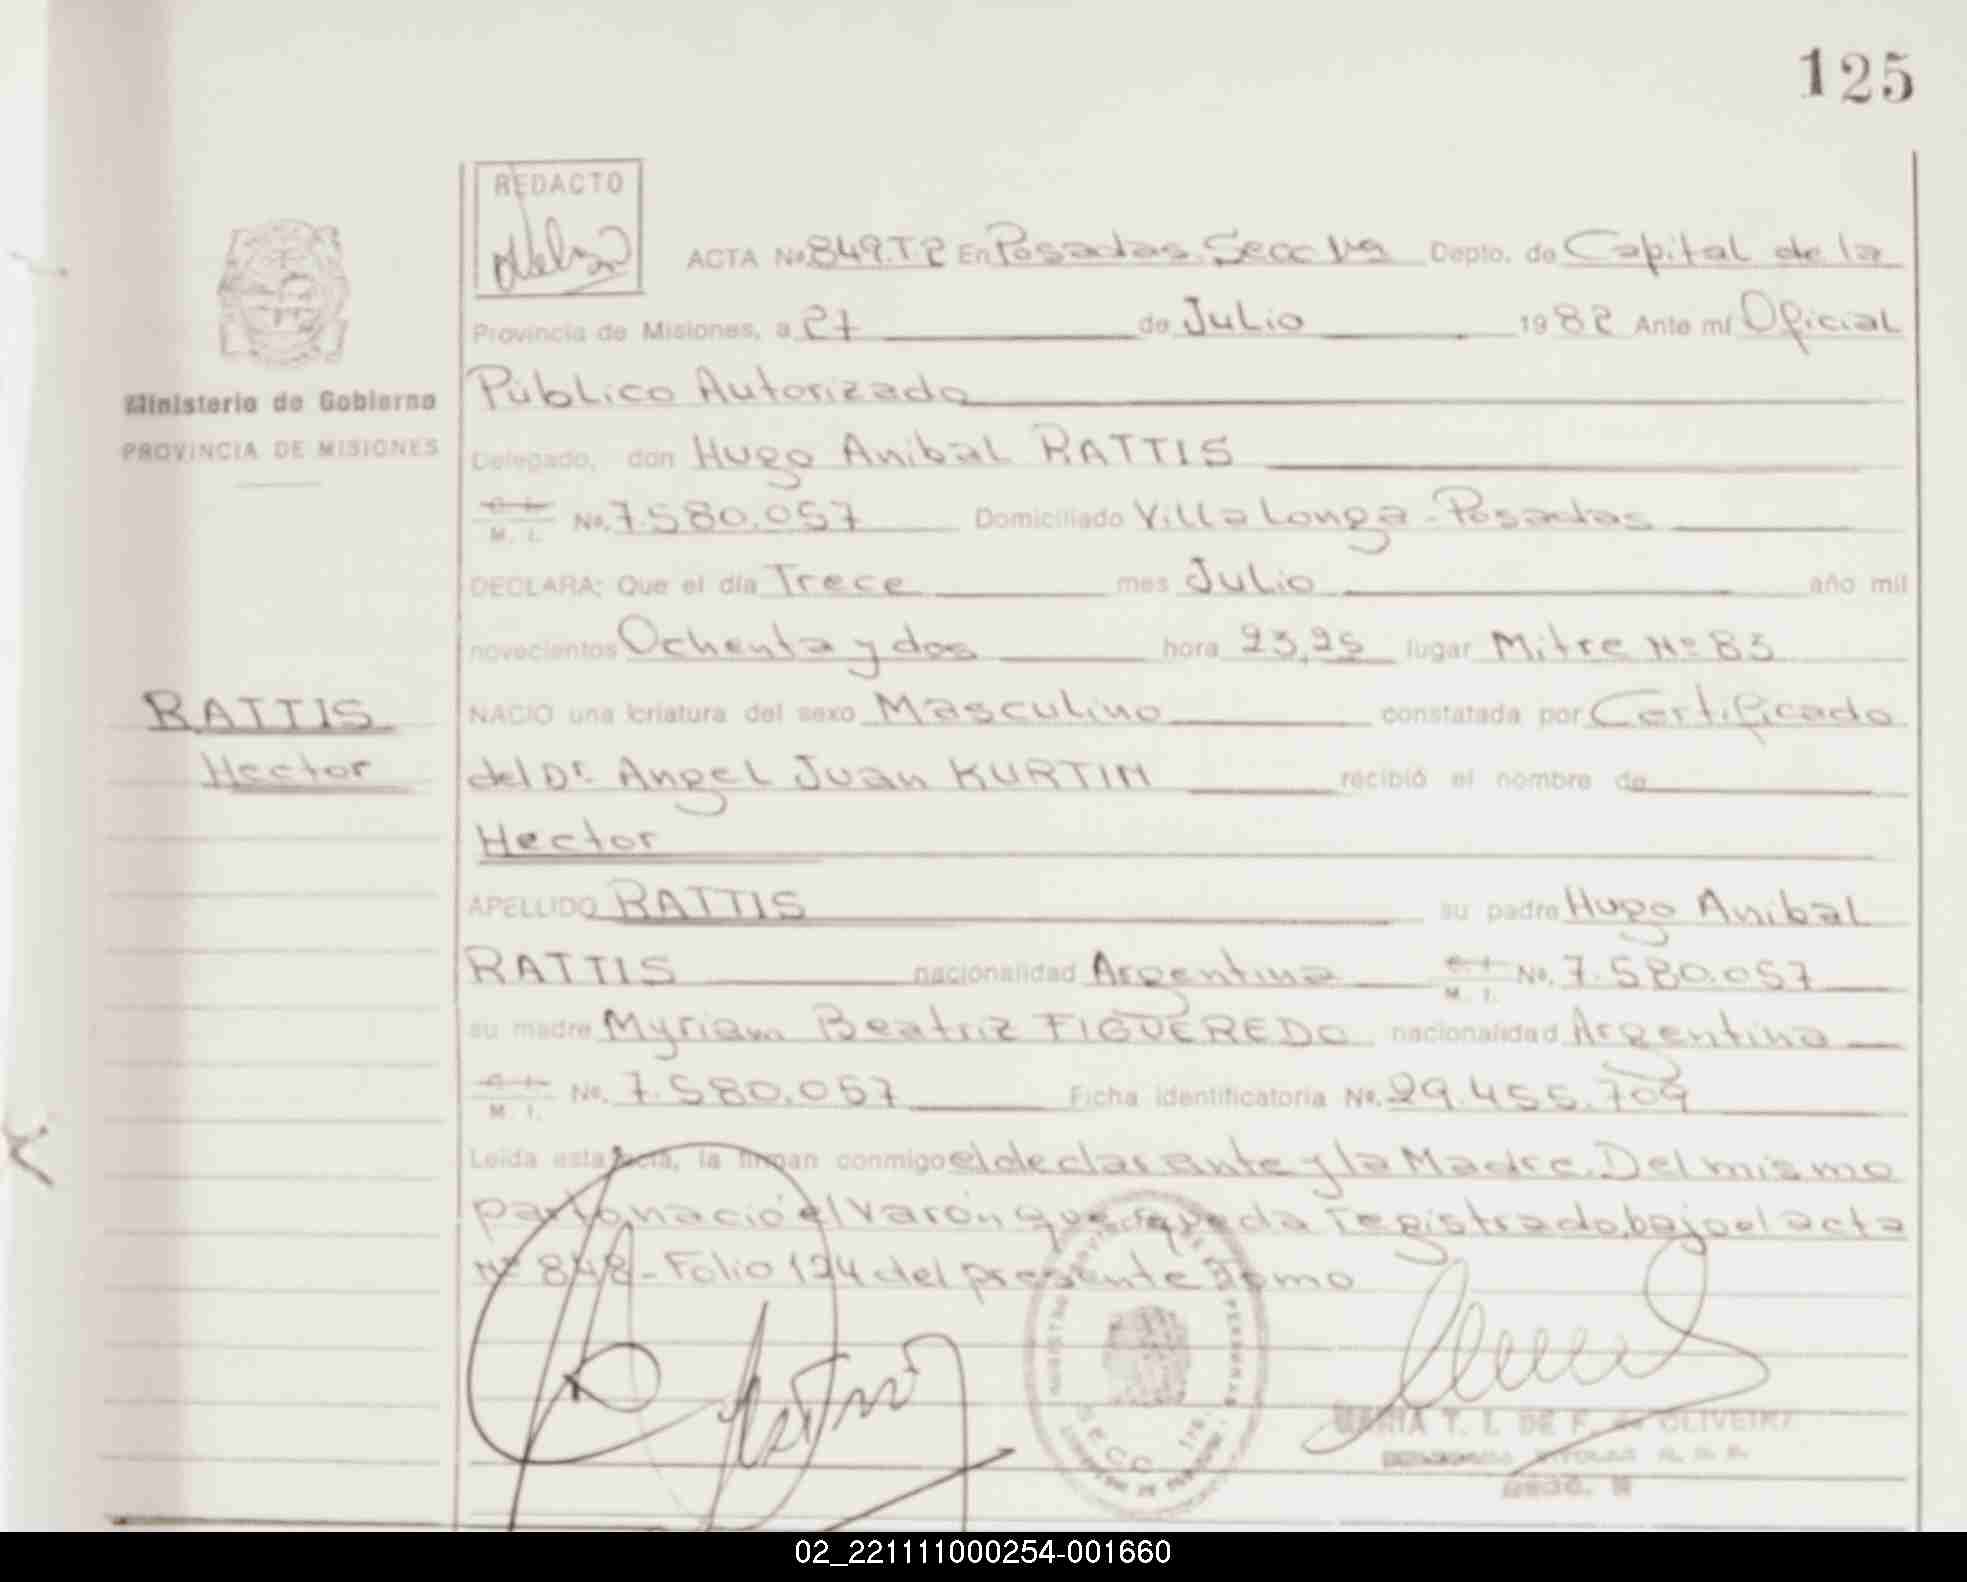 125
REDACTO
ACTA No. 849.T2 En Posadas. Secc 1ra Depto. de Capital de la
Provincia de Misiones, a 27 de Julio 1982 Ante mí Oficial
Público Autorizado
Ministerio de Gobierno
PROVINCIA DE MISIONES
Delegado, don Hugo Anibal RATTIS
C. I. M. I. No. 7.580.057 Domiciliado Villa Longa - Posadas
DECLARA: Que el día Trece mes Julio año mil
novecientos Ochenta y dos hora 23,25 lugar Mitre Nº 83
RATTIS
Hector
NACIO una criatura del sexo Masculino constatada por Certificado
del Dr. Angel Juan KURTIN recibió el nombre de
Hector
APELLIDO RATTIS su padre Hugo Anibal
RATTIS nacionalidad Argentina C. I. M. I. No. 7.580.057
su madre Myriam Beatriz FIGUEREDO nacionalidad Argentina
C. I. M. I. No. 7.580.057 Ficha identificatoria No. 29.455.709
Leída esta acta, la firman conmigo el declarante y la Madre. Del mismo
parto nació el Varón que queda registrado bajo el acta
Nº 848 - Folio 124 del presente Tomo
SECC. 1ra.
MARIA T. I. DE F. de OLIVEIRA
02_221111000254-001660